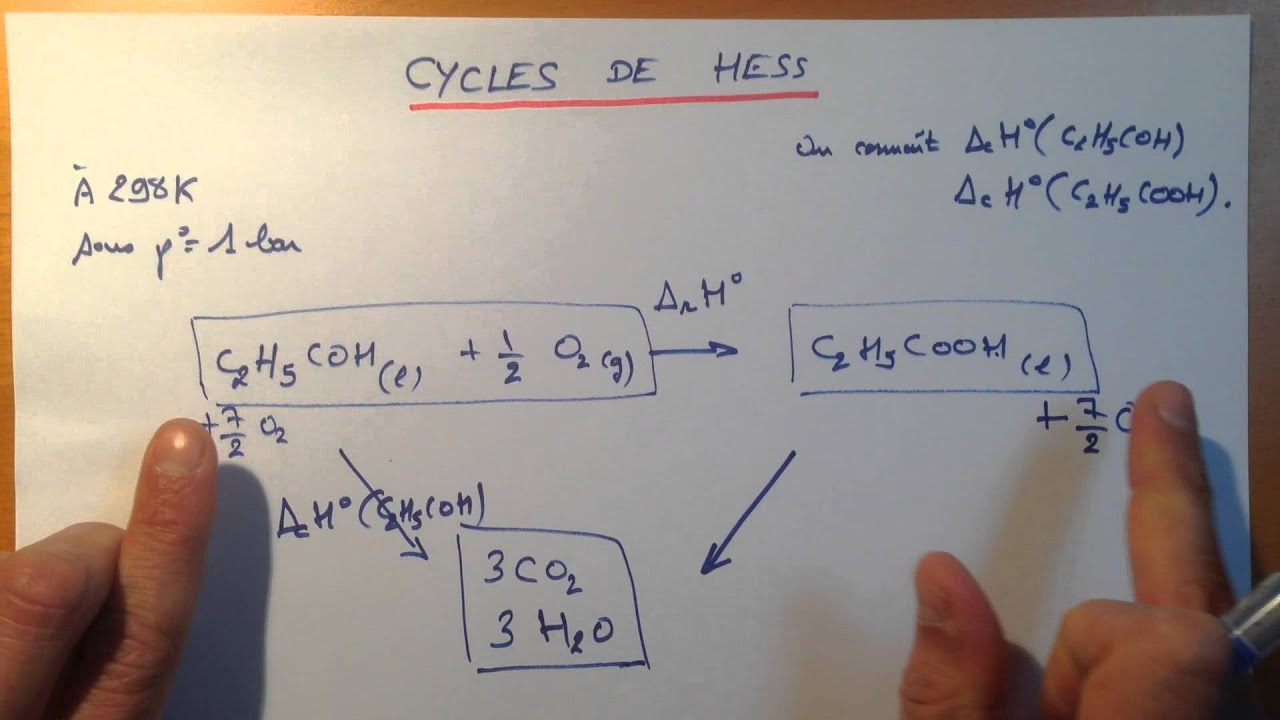 CYCLES DE HESS
On connaît ΔcH°(C2H5COH)
ΔcH°(C2H5COOH).
À 298K
sous p°=1 bar
ΔrH°
C2H5COH(l) + 1/2 O2(g) → C2H5COOH(l)
+ 7/2 O2
+ 7/2
ΔcH°(C2H5COH)
3CO2
3 H2O